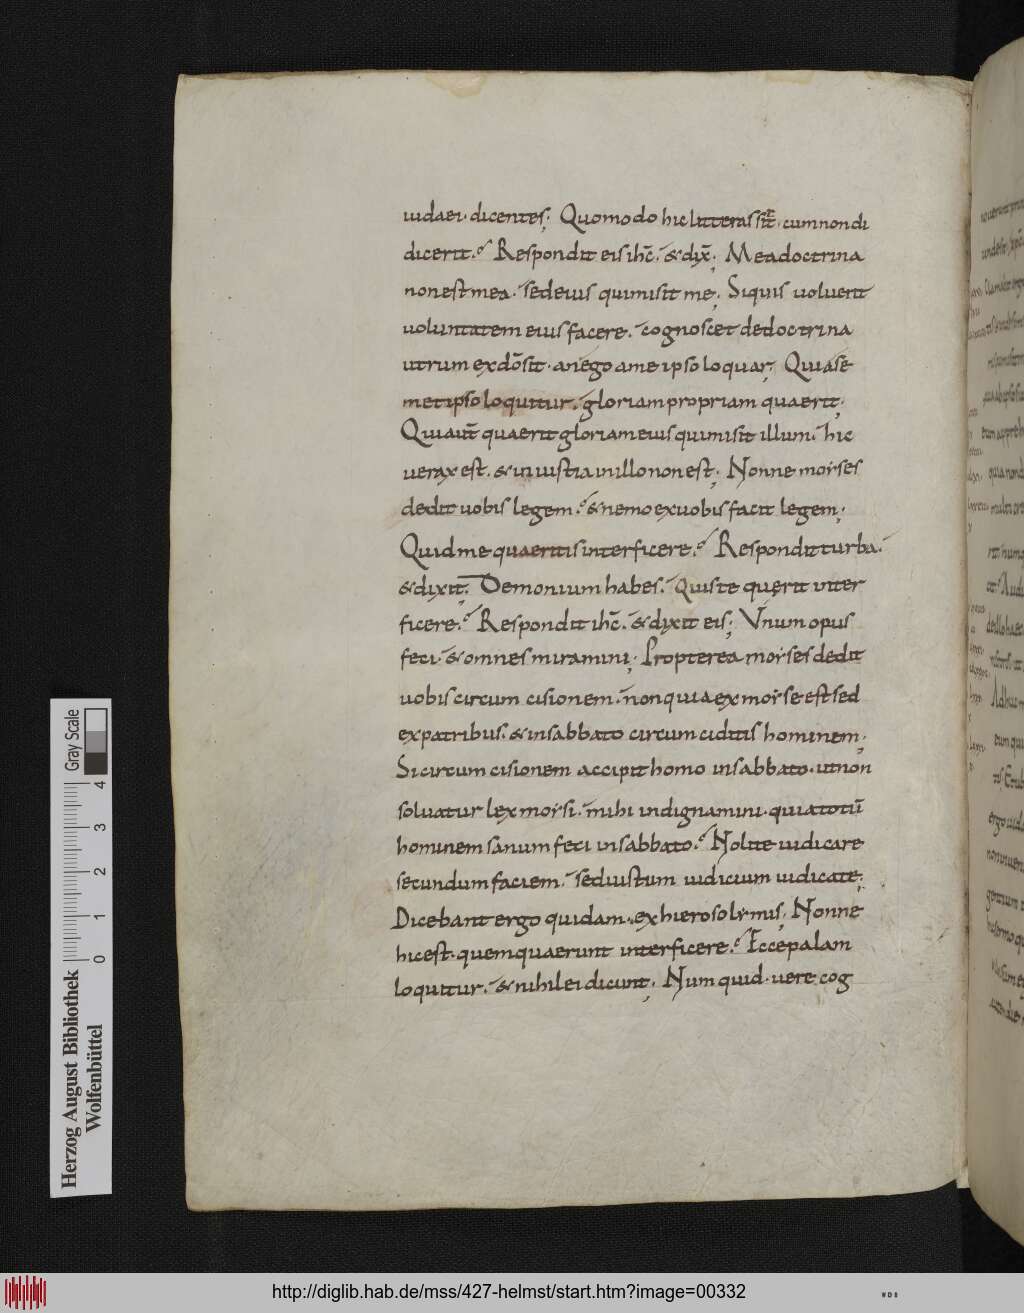 iudaei· dicentes; Quomodo hic litteras sit· cum non di
dicerit. Respondit eis ihc̄. & dix̄; Mea doctrina
non est mea· sed eius qui misit me; Siquis uoluerit
uoluntatem eius facere. cognoscet de doctrina
utrum ex dō sit· an ego a me ipso loquar; Qui a se
met ipso loquitur. gloriam propriam quaerit;
Qui aut̄ quaerit gloriam eius qui misit illum. hic
uerax est. & iniustia in illo non est; Nonne moyses
dedit uobis legem. & nemo ex uobis facit legem;
Quid me quaeritis interficere. Respondit turba.
& dixit; Demonium habes. quis te querit inter
ficere. Respondit ihc̄. & dixit eis; Vnum opus
feci· & omnes miramini; Propterea moyses dedit
uobis circum cisionem. non quia ex moyse est sed
ex patribus. & in sabbato circum ciditis hominem;
Si circum cisionem accipit homo in sabbato· ut non
soluatur lex moysi. mihi indignamini· quia totū
hominem sanum feci in sabbato. Nolite iudicare
secundum faciem. sed iustum iudicium iudicate;
Dicebant ergo quidam· ex hierosolymis; Nonne
hic est· quem quaerunt interficere. Ecce palam
loquitur. & nihil ei dicunt; Num quid· uere cog
Herzog August Bibliothek
Wolfenbüttel
Gray Scale
0 1 2 3 4
http://diglib.hab.de/mss/427-helmst/start.htm?image=00332